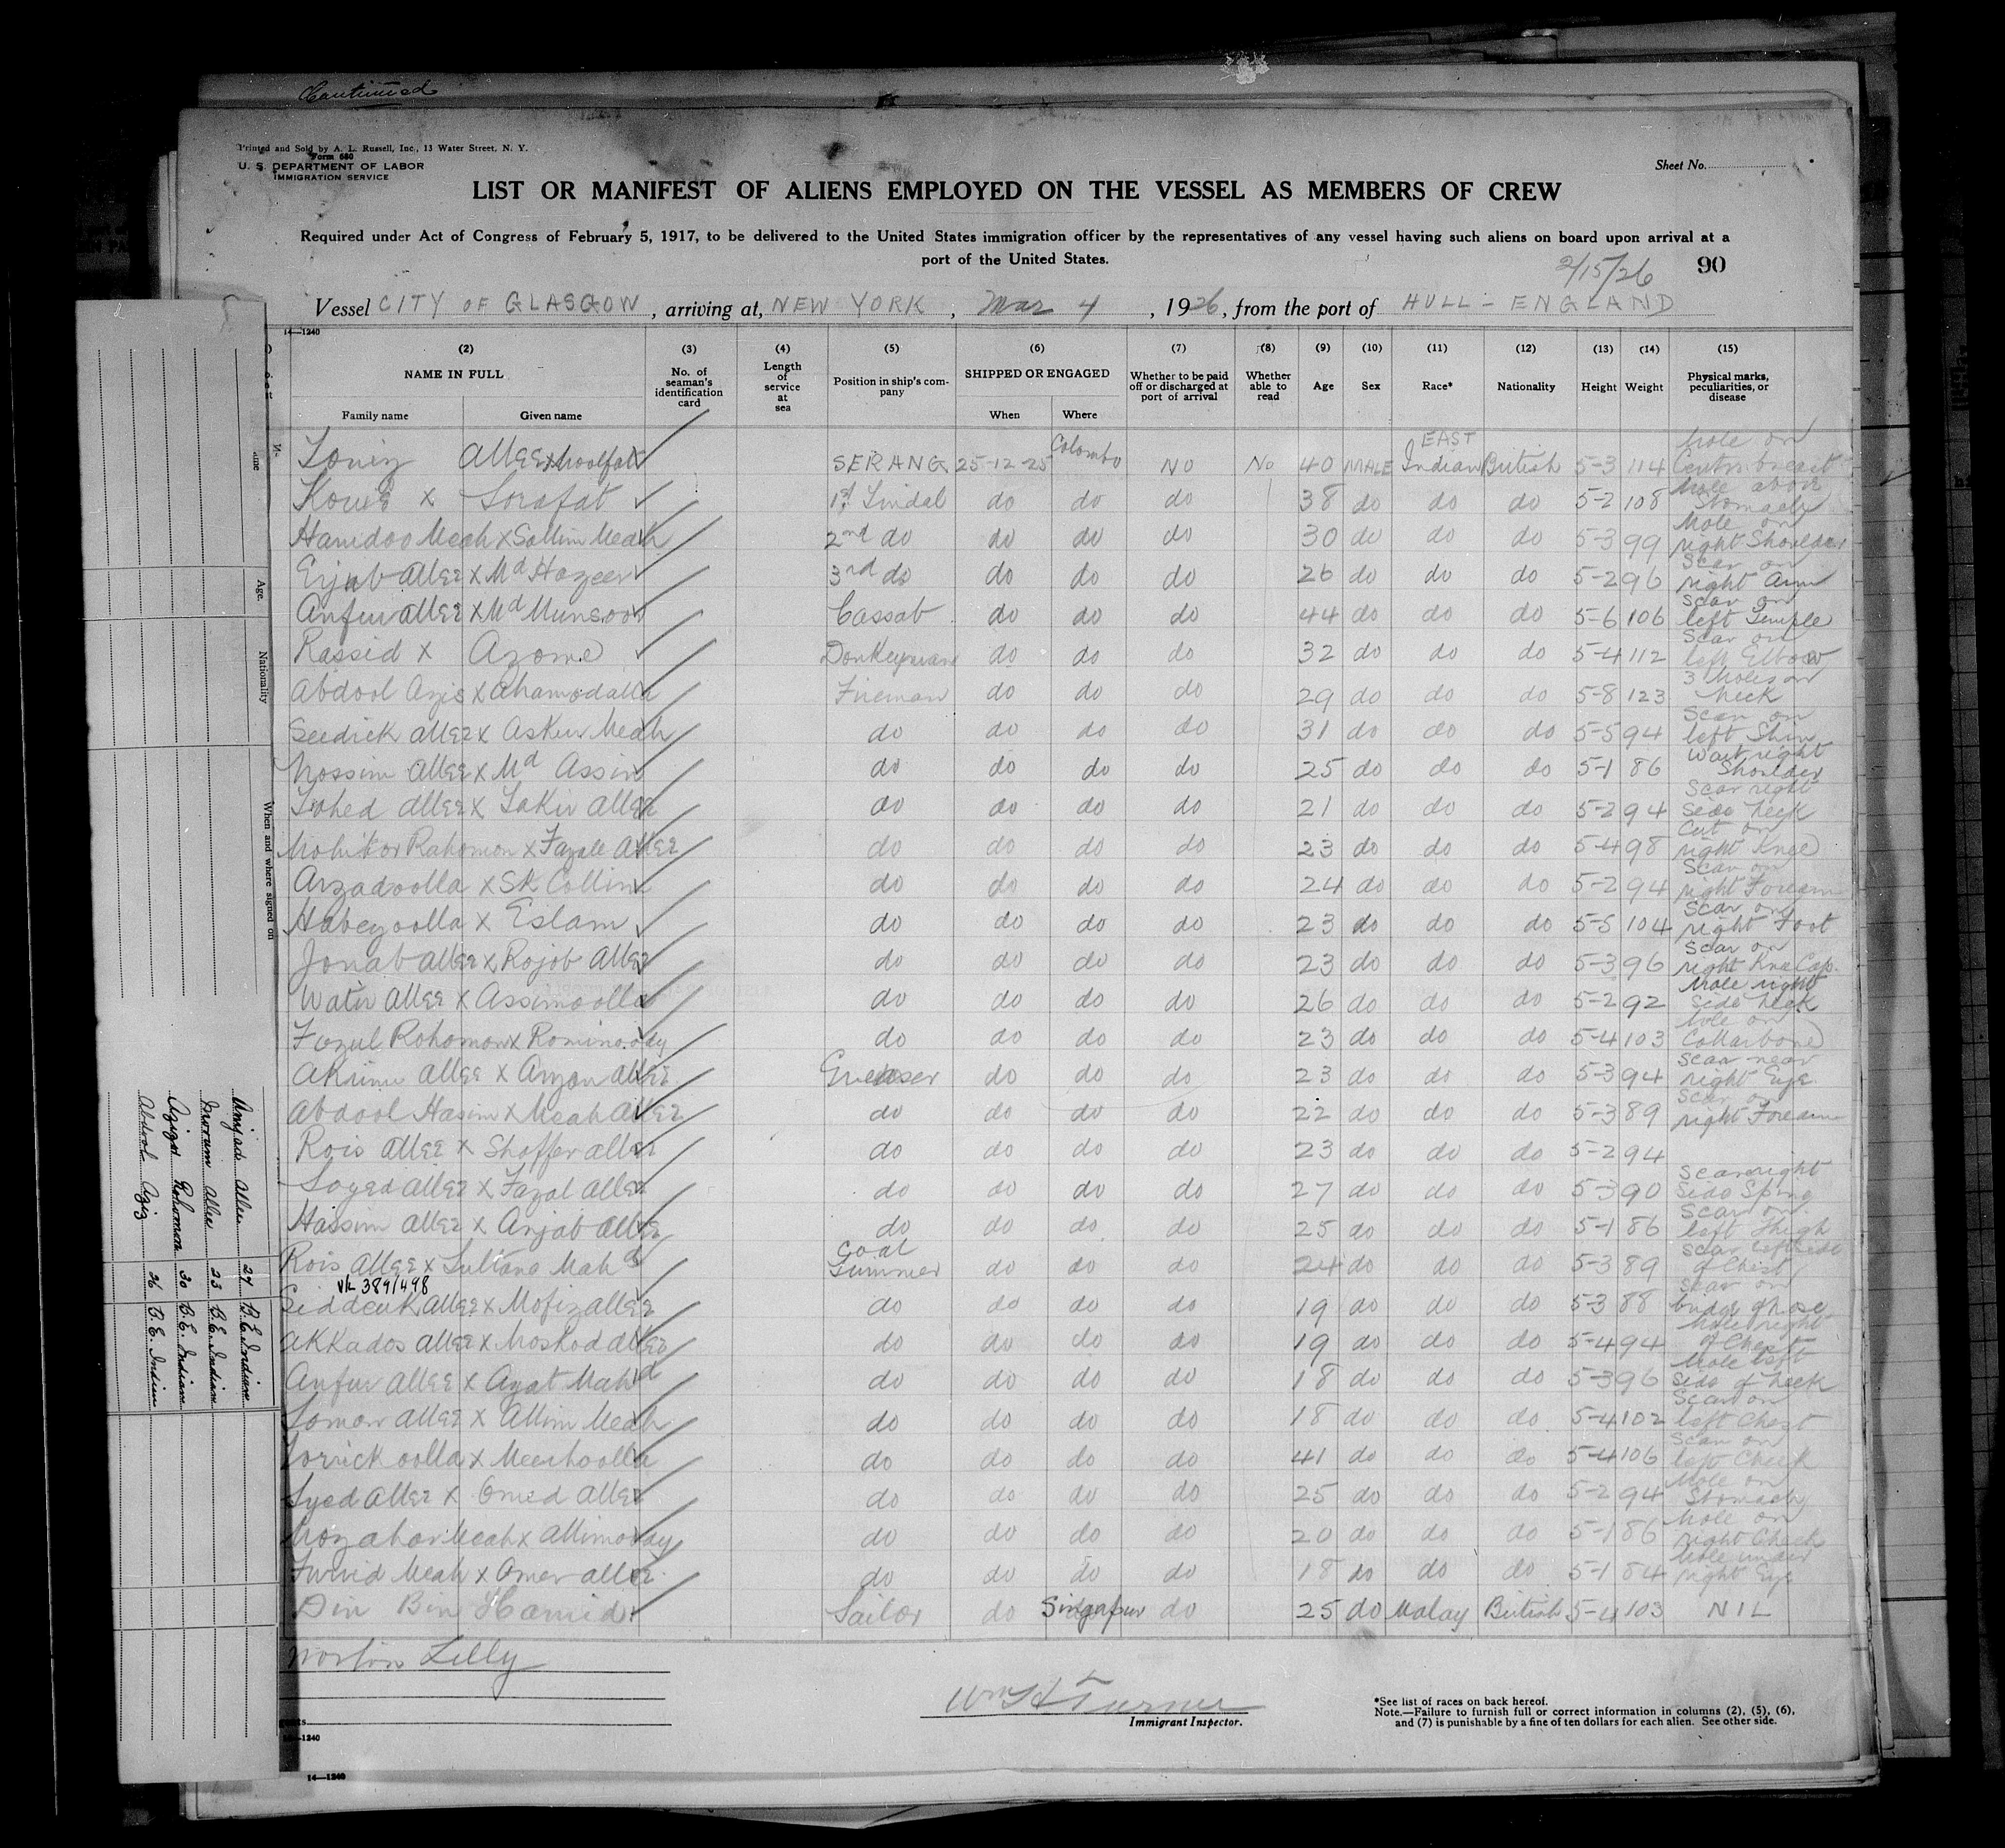 Continued
Printed and Sold by A. L. Russell, Inc., 13 Water Street, N. Y.
Form 680
U. S. DEPARTMENT OF LABOR
IMMIGRATION SERVICE
Sheet No.
LIST OR MANIFEST OF ALIENS EMPLOYED ON THE VESSEL AS MEMBERS OF CREW
Required under Act of Congress of February 5, 1917, to be delivered to the United States immigration officer by the representatives of any vessel having such aliens on board upon arrival at a
port of the United States.
2/15/26 90
Vessel CITY OF GLASGOW, arriving at, NEW YORK, Mar 4, 1926, from the port of HULL - ENGLAND
14—1240
(2) (3) (4) (5) (6) (7) (8) (9) (10) (11) (12) (13) (14) (15)
NAME IN FULL No. of seaman's identification card Length of service at sea Position in ship's company SHIPPED OR ENGAGED Whether to be paid off or discharged at port of arrival Whether able to read Age Sex Race* Nationality Height Weight Physical marks, peculiarities, or disease
Family name Given name When Where
Allee x Moolfat SERANG 25-12-25 Colombo No No 40 MALE EAST Indian British 5-3 114 Mole on Centre breast
x Sorafat 1st Tindal do do do 38 do do do 5-2 108 Mole above Stomach
Hamdoo Meah x Sollim Meah 2nd do do do do 30 do do do 5-3 99 Mole on right Shoulder
Erjub Allee x Md Hozeer 3rd do do do do 26 do do do 5-2 96 Scar on right Arm
Anfur Allee x Md Munsoor Cassab do do do 44 do do do 5-6 106 Scar on left Temple
Rassid x Azome Donkeyman do do do 32 do do do 5-4 112 Scar on left Elbow
Abdool Azis x Ahamodalla Fireman do do do 29 do do do 5-8 123 3 Moles on Neck
Seedick Allee x Askur Meah do do do do 31 do do do 5-5 94 Scar on left Shin
Nossim Allee x Md Assim do do do do 25 do do do 5-1 86 Wart right Shoulder
Allee x Sakir Allee do do do do 21 do do do 5-2 94 Scar right side Neck
Mohibor Rahomon x Fazale Allee do do do do 23 do do do 5-4 98 Cut on right Knee
Arzadoolla x SK Collim do do do do 24 do do do 5-2 94 Scar on right Forearm
Habezoolla x Eslam do do do do 23 do do do 5-5 104 Scar on right Foot
Jonab Allee x Rojob Allee do do do do 23 do do do 5-3 96 Scar on right Knee Cap.
Watir Allee x Assimoolla do do do do 26 do do do 5-2 92 Mole right side Neck
Fozul Rohomon x Rominoddy do do do do 23 do do do 5-4 103 Mole on Collarbone
Akrim Allee x Arzon Allee Greaser do do do 23 do do do 5-3 94 Scar near right Eye
Abdool Hasim x Meah Allee do do do do 22 do do do 5-3 89 Scar on right Forearm
Rois Allee x Shoffer Allee do do do do 23 do do do 5-2 94
Soyed Allee x Fazal Allee do do do do 27 do do do 5-3 90 Scar right side
Hassim Allee x Anjab Allee do do do do 25 do do do 5-1 86 Scar on left Thigh
Rois Allee x Sultana Mahd Coal Trimmer do do do 24 do do do 5-3 89 Scar left side of Chest
389/498
Siddeuk Allee x Mofiz Allee do do do do 19 do do do 5-3 88 Scar on bridge of Nose
Akkados Allee x Moskod Allee do do do do 19 do do do 5-4 94 Mole right of Chest
Anfur Allee x Azat Mahd do do do do 18 do do do 5-3 96 Mole left side of Neck
Somor Allee x Allim Meah do do do do 18 do do do 5-4 102 Scar on left Chest
x Meerhoolla do do do do 41 do do do 5-4 106 Scar on left Cheek
Syed Allee x Omed Allee do do do do 25 do do do 5-2 94 Mole on Stomach
Mozahar Meah x Allimoddy do do do do 20 do do do 5-1 86 Mole on right Cheek
Meah x Omer Allee do do do do 18 do do do 5-1 84 Mole under right Eye
Din Bin Hamid Sailor do Singapur do 25 do Malay British 5-4 103 NIL
Norton Lilly
Wm H Turner
Immigrant Inspector.
*See list of races on back hereof.
Note.—Failure to furnish full or correct information in columns (2), (5), (6),
and (7) is punishable by a fine of ten dollars for each alien. See other side.
14—1240
Age.
Nationality
When and where signed on
Amjad Allee 29 B.E. Indian
Morum Allee 23 B.E. Indian
Azizur Rohomon 30 B.E. Indian
Abdool Aziz 26 B.E. Indian